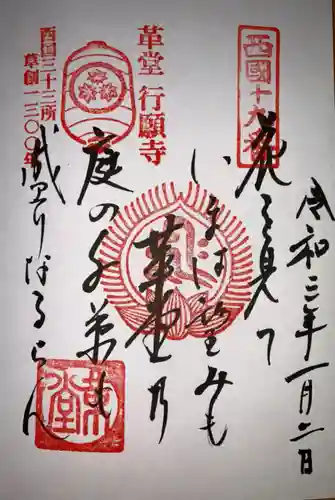 令和三年一月二日
西國十九番
花を見て
いまは望みも
革堂乃
庭の千草も
盛りなるらん
革堂 行願寺
西国三十三所
草創一三〇〇年
革堂